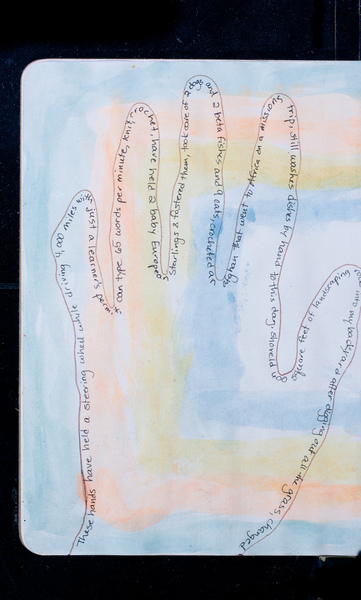 These hands have held a steering wheel while driving 4,000 miles with
just a learner's permit,
can type 65 words per minute, knit, crochet,
have held 2 baby European
Starlings & fostered them, took care of 2 dogs
and 2 beta fishes and 9 cats, crocheted an
afghan that went to Africa on a missions
trip, still washes dishes by hand to this day, shoveled
square feet of landscaping
into my backyard after digging out all the grass, changed